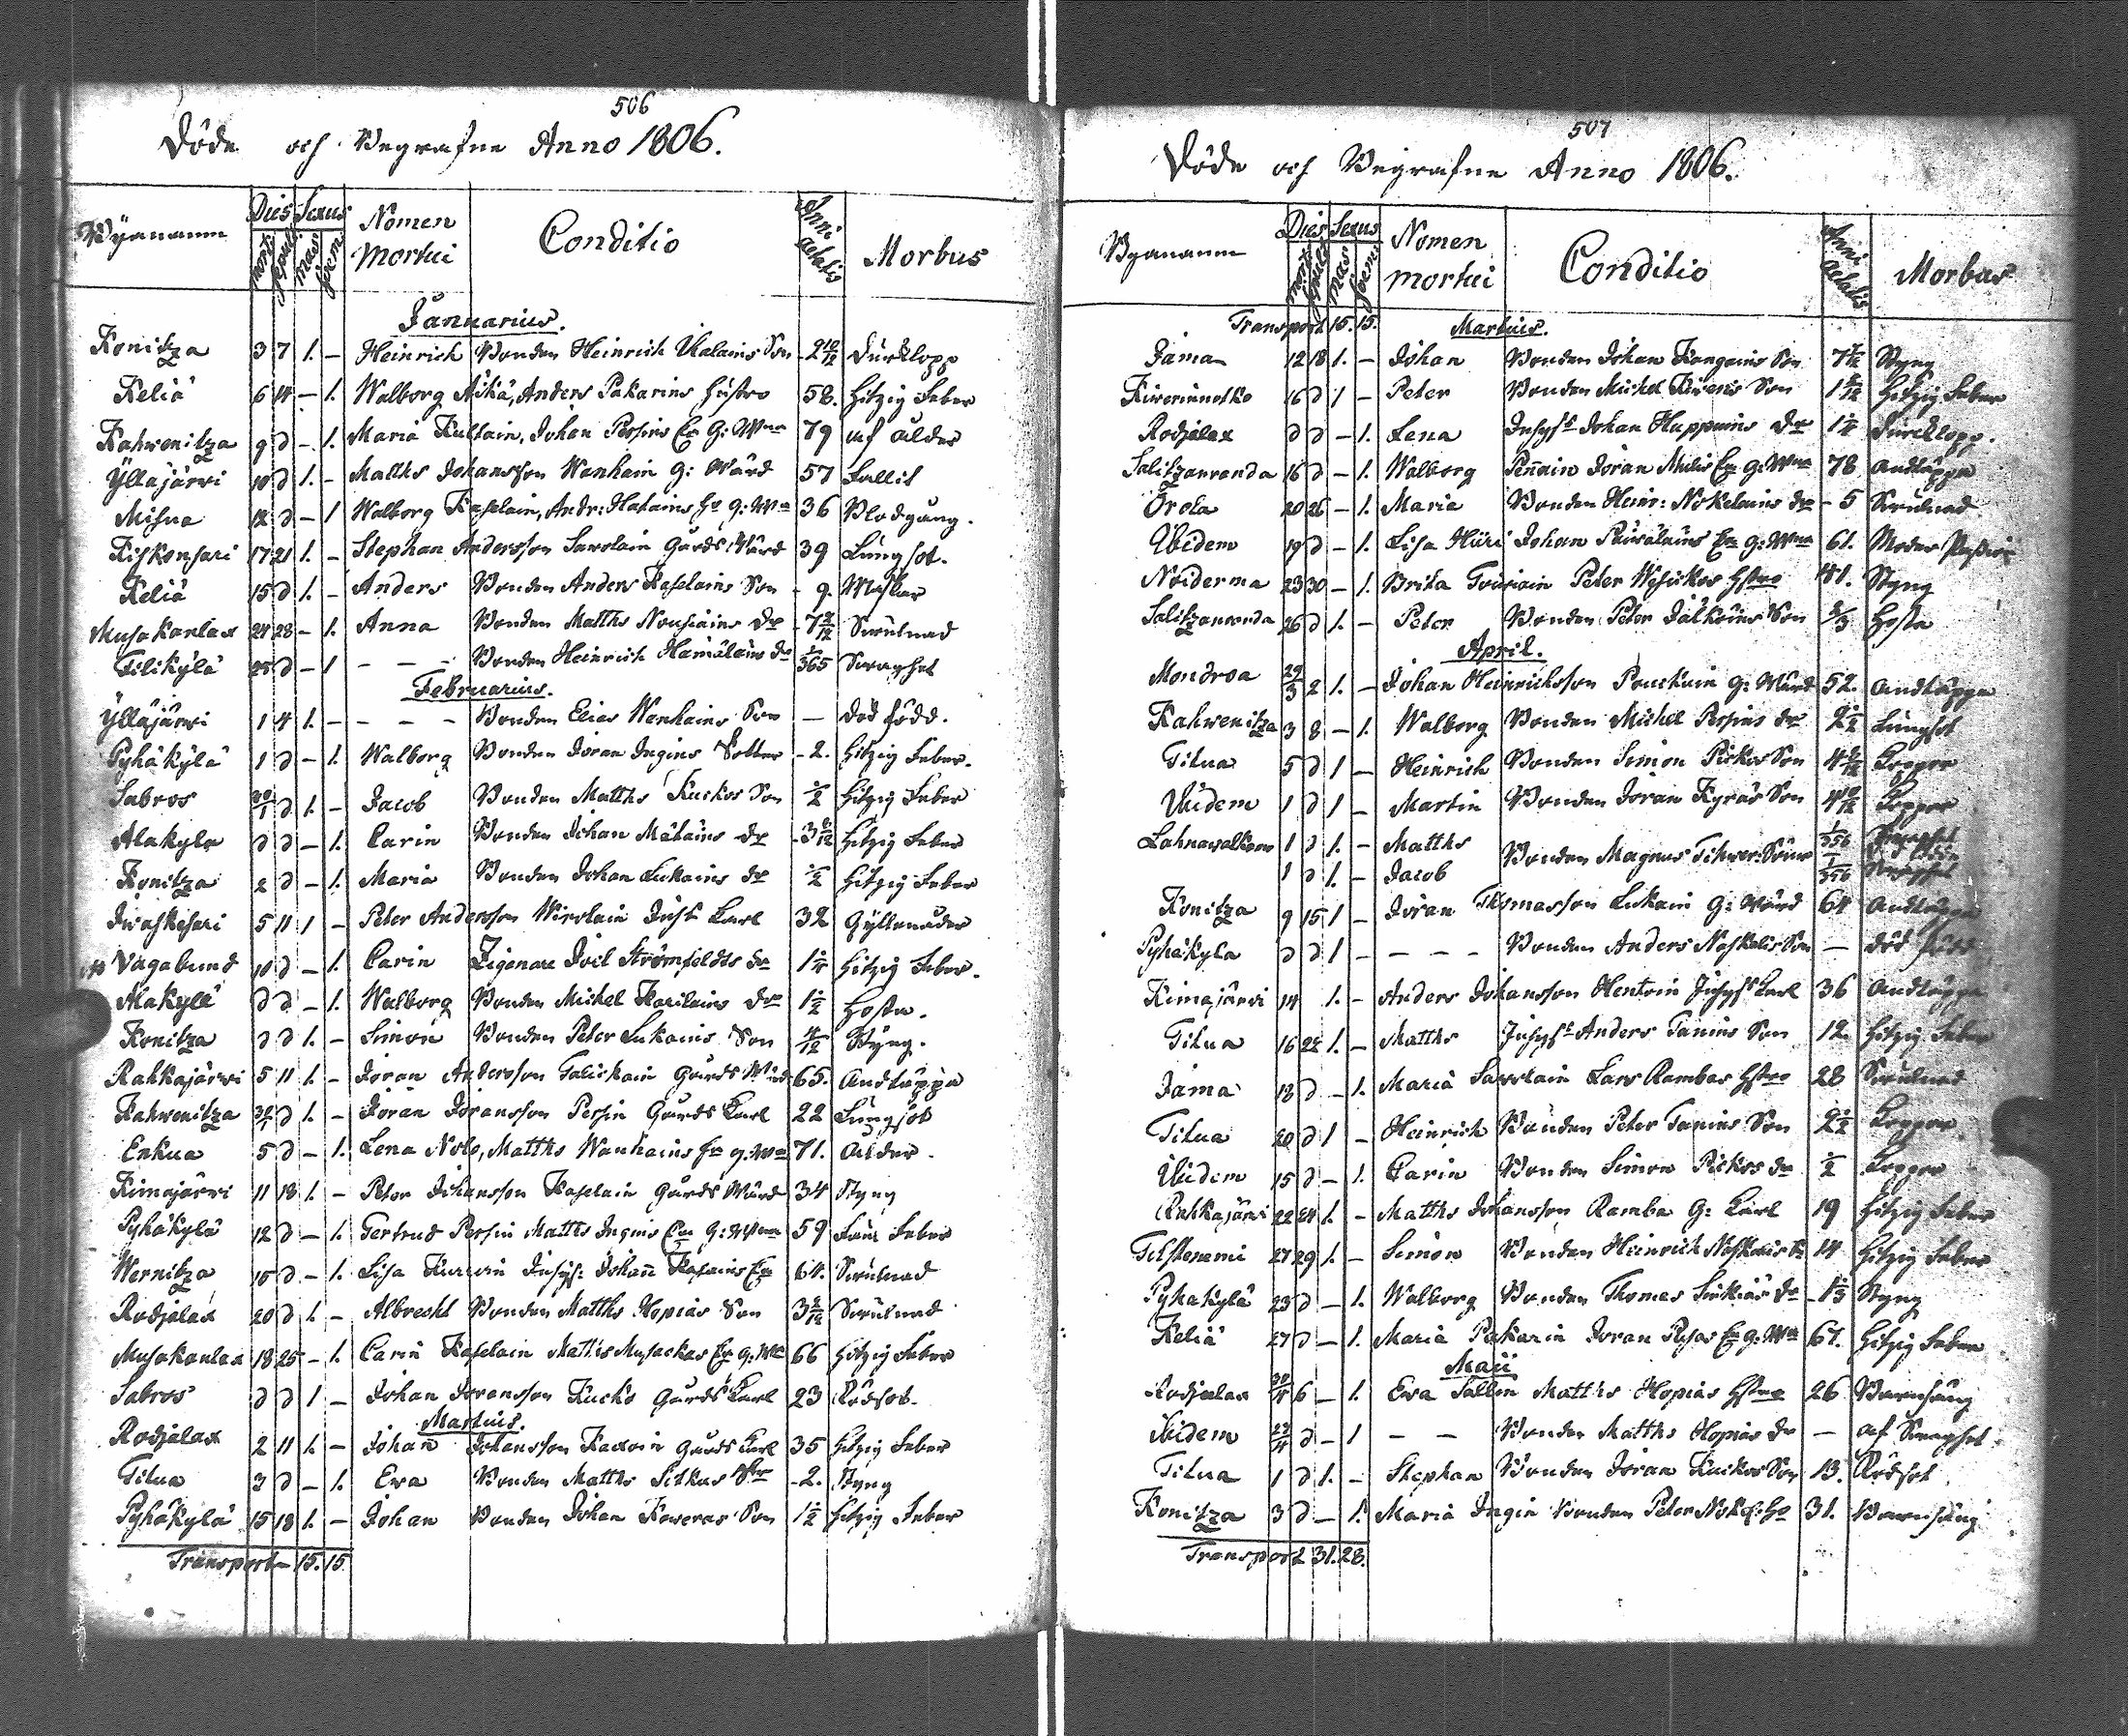 506
Döde och Begrafne Anno 1806.
Bÿanamn Dies Sexus Nomen mortui Conditio Anni aetatis Morbus
mort. sepult. mas. foem.
Januarius.
Konitza 3 7 1. – Heinrich Bonden Heinrich Ukalains Son 2 10/12 Durklopp
Keliä 6 14 – 1. Walborg Äikä, Anders Pakarins Hustro 58. Hitzig Feber
Kahwenitza 9 d – 1. Maria Kultain, Johan Persins Ea G: Wma 79 af ålder
Ylläjärvi 10 d 1. – Matths Johansson Wanhain G: Wärd 57 Fallit
Misua 12 d – 1 Walborg Kaselain, Andr: Hatains Ea G: Wma 36 Blodgång.
Kiskonsari 17 21 1. – Stephan Andersson Sawolain Gårds Wärd 39 Lungsot.
Keliä 15 d 1. – Anders Bonden Anders Kaselains Son - 9. Maskar
Musakanlax 24 28 – 1. Anna Bonden Matths Nousiains Dr - 7 2/12 Swulnad
Tilikylä 25 d – 1 – – – Bonden Heinrich Hämäläins Dr 1/365 Swaghet
Februarius.
Ylläjärvi 1 4 1. – – – – Bonden Elias Wanhains Son — död född.
Pyhäkylä 1 d – 1. Walborg Bonden Jöran Ingins Dotter - 2. Hitzig Feber.
Sabros 30/1 d 1. – Jacob Bonden Matths Kuckos Son 1/2 Hitzig Feber
Alakyla d d – 1. Carin Bonden Johan Mätäins dr - 3 6/12 Hitzig Feber
Konitza 2 d – 1. Maria Bonden Johan Lukains dr 1/2 Hitzig Feber
Iwaskesari 5 11 1 – Peter Andersson Wirolain Inh: Karl 32 Gyllenåder
Vagabund 10 d – 1. Carin Zigenare Joel Strömfeldts dr 1 1/4 Hitzig Feber.
Alakylä d d – 1. Walborg Bonden Michel Karilains dr 1 1/2 Hosta.
Konitza d d 1. – Simon Bonden Peter Lukains Son 4/12 Styng.
Rahkajärvi 5 11 1. – Jöran Andersson Taliskain Gårds Wärd 65. Andtäppa
Kahwenitza 31/1 d 1. – Jöran Jöransson Persin Gårds Karl 22 Lungsot
Enkua 5 d – 1. Lena Nols, Matths Wanhains Ea g. Wma 71. Ålder.
Kimajärvi 11 18 1. – Peter Johansson Kaselain Gårds Wärd 34 Styng
Pyhäkylä 12 d – 1. Gertrud Persin Matths Ingins Ea G: Wma 59 Feber
Wernitza 15 d – 1. Lisa Kurwin Inhys: Johan Kaseins Ea 64. Swulnad
Rodjelax 20 d 1. – Albrecht Bonden Matths Hopias Son 3 2/12 Swulnad
Musakanlax 18 25 – 1. Carin Kaselain Matths Musackas Ea g: Wa 66 Hitzig Feber
Sabros d d 1 – Johan Jöransson Kucko Gårds Karl 23 Rödsot.
Martius.
Rodjelax 2 11 1. – Johan Johansson Kaxoin Gårds Karl 35 Hitzig Feber
Titua 3 d – 1. Eva Bonden Matths Sitkus Dr - 2. Styng
Pyhäkylä 15 18 1. – Johan Bonden Johan Koweras Son 1 1/2 Hitzig Feber
Transport – 15. 15
507
Döde och Begrafne Anno 1806.
Byanamn Dies Sexus Nomen mortui Conditio Anni aetatis Morbus
mort. sepult. mas. foem.
Transport 15. 15.
Martius.
Jäma 12 18 1. – Johan Bonden Johan Kangains Son Styng
Kiwerinnotko 16 d 1 – Peter Bonden Michel Kiweris Son Hitzig Feber
Rodjelax d d – 1. Lena Inhyst Johan Huppuins Dr Durcklopp.
Salitzanranda 16 d – 1. Walborg Pennain Jöran Mulis Ea G: Wma 78 Andtäppa
Orola 20 26 – 1. Maria Bonden Heinr: Nokelains dr - 5 Swulnad
Ibidem 19 d – 1. Lisa Hüri Johan Päiwäläins Ea g: Wma 61. Moder Passion
Noiderma 23 30 – 1. Brita Touriain Peter Wesickos Hstro 41. Styng
Salitzanranda 26 d 1. – Peter Bonden Peter Jälköins Son 2/3 Hosta
April.
Mondroa 29/3 2 1. – Johan Heinrichsson Pouckuin G: Wärd 52. Andtäppa
Kahwenitza 3 8 – 1. Walborg Bonden Michel Persins dr 2 1/2 Lungsot
Titua 5 d 1 – Heinrich Bonden Simon Pickos Son Koppor
Ibidem 1 d 1 – Martin Bonden Jöran Kyräs Son Koppor
Lahnawalkama 1 d 1. – Matths Bonden Magnus Tihwer: Söner 1/356 Swaghet
1 d 1. – Jacob 1/356 Swaghet
Konitza 9 15 1 – Jöran Thomasson Lukain G: Wärd 64 Andtäppa
Pyhäkyla d d 1 – – – – Bonden Anders Noskelis Son — död född
Kimajärvi 14 1. – Anders Johansson Hentoin Inhyst Karl 36 Andtäppa
Titua 16 22 1. – Matths Inhyst Anders Tanins Son 12. Hitzig Feber
Jäma 18 d – 1. Maria Sawolain Lars Rambas Hstro 28 Swulnad
Titua 20 d 1 – Heinrich Bonden Peter Tanins Son 2 1/2 Koppor
Ibidem 15 d – 1. Carin Bonden Simon Pickos dr 1/2 Koppor
Rahkajärvi 22 24 1. – Matths Johansson Ramba G: Karl 19 Hitzig Feber
Tilstenemi 27 29 1. – Simon Bonden Heinrich Noskelis Sn 14 Hitzig Feber
Pyhakylä 23 d – 1. Walborg Bonden Thomas Sinkiäs dr Styng
Keliä 27 d – 1. Maria Pakarin Jöran Pusas Ea g: Wa 67. Hitzig Feber
Maii
Rodjelax 30/4 6 – 1. Eva Sallin Matths Hopias Hstro 26 Barnsäng
Ibidem 29/4 d – 1 – – Bonden Matths Hopias dr — af Swaghet
Titua 1 d 1. – Stephan Bonden Jöran Kuckos Son 13. Rödsot
Konitza 3 d – 1. Maria Ingin Bonden Peter Nokel: Ho 31. Barnsäng
Transport 31. 28.